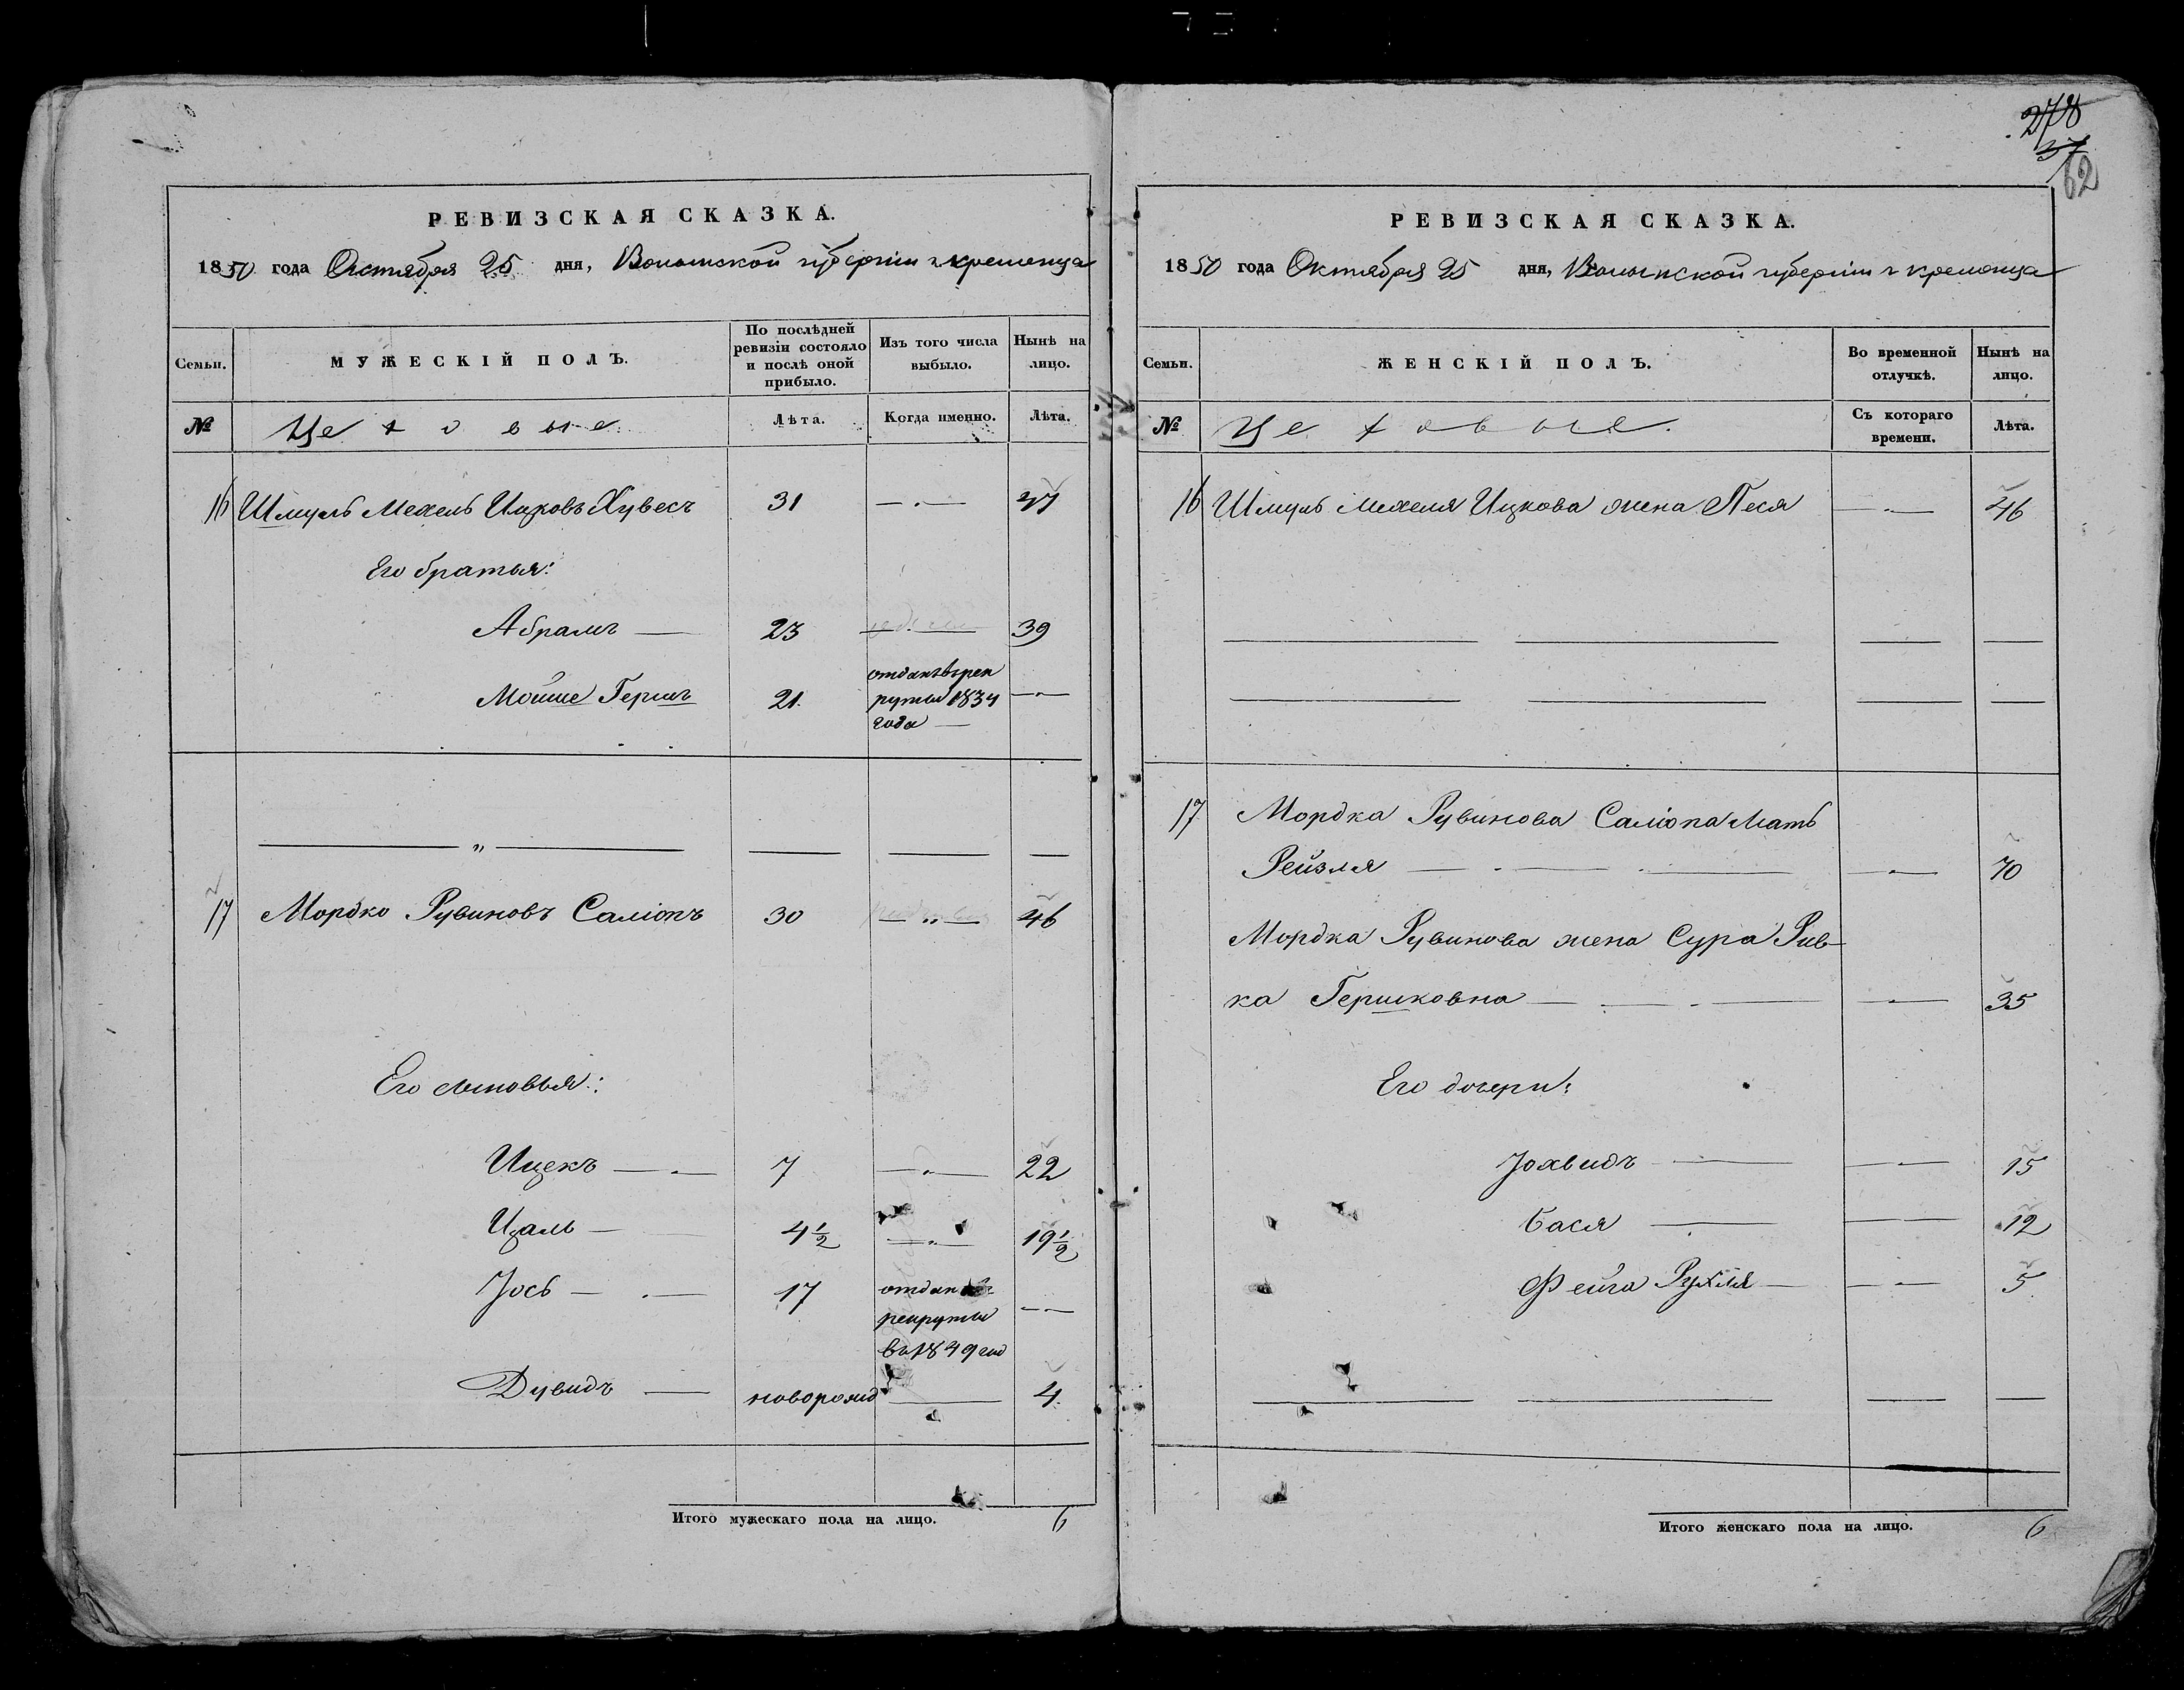 278
37
62
РЕВИЗСКАЯ СКАЗКА.
1850 года Октября 25 дня, Волынской губерніи г кременца
Семьи. МУЖЕСКІЙ ПОЛЪ. По послѣдней ревизіи состояло и послѣ оной прибыло. Изъ того числа выбыло. Нынѣ на лицо.
№ Цеховые Лѣта. Когда именно. Лѣта.
16 Шмуль Мехель Ицковъ Хувесъ 31 — 47
Его братья:
Абрамъ — 23 — 39
Мойше Гершъ 21. отданъ въ рек
руты 1834
года —
— „ —
17 Мордко Рувиновъ Саліопъ 30 — „ — 46
Его сыновья:
Ицекъ — 7 — 22
Цаль — 4½ — 19½
Јось — 17 отданъ въ
рекруты
въ 1849 год
Дувидъ — новорожд — 4
Итого мужескаго пола на лицо. 6
РЕВИЗСКАЯ СКАЗКА.
1850 года Октября 25 дня, Волынской губерніи г кременца
Семьи. ЖЕНСКІЙ ПОЛЪ. Во временной отлучкѣ. Нынѣ на лицо.
№ Цеховые. Съ котораго времени. Лѣта.
16 Шмуль Мехеля Ицкова жена Песя — 46
17 Мордка Рувинова Саліопа Мать
Рейзля — 70
Мордка Рувинова жена Сура Рив-
ка Гершковна — 35
Его дочери:
Јохвидъ — 15
Бася — 12
Фейга Рухля — 5
Итого женскаго пола на лицо. 6